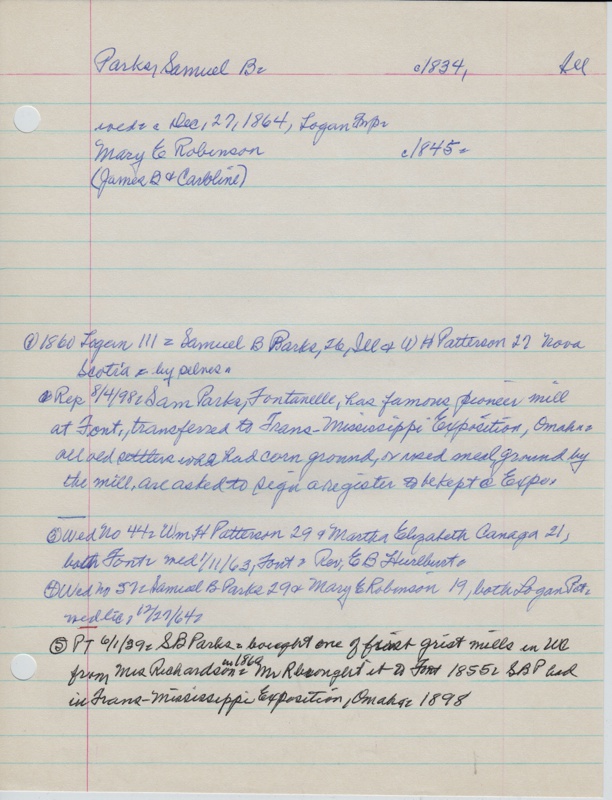 Parks, Samuel B= c/1834, Ill
wed= Dec, 27, 1864, Logan Twp=
Mary E Robinson c/1845=
(James B & Caroline)
① 1860 Logan 111= Samuel B Parks, 26, Ill & W H Patterson 27 Nova
Scotia = by selves=
② Rep 8/4/98= Sam Parks, Fontanelle, has famous pioneer mill
at Font, transferred to Trans-Mississippi Exposition, Omaha=
all old settlers who had corn ground, or used meal ground by
the mill, are asked to sign a register to be kept @ Expo.
③ Wed No 44= Wm H Patterson 29 & Martha Elizabeth Canaga 21,
both Font= wed 1/11/63, Font= Rev, E B Hurlburt=
④ Wed no 57= Samuel B Parks 29 & Mary E Robinson 19, both Logan Pct=
wed lic, 12/27/64=
⑤ PT 6/1/39= S B Parks= bought one of first grist mills in WC
from Mrs Richardson in 1869= Mr R brought it to Font 1855= S B P had
in Trans-Mississippi Exposition, Omaha= 1898